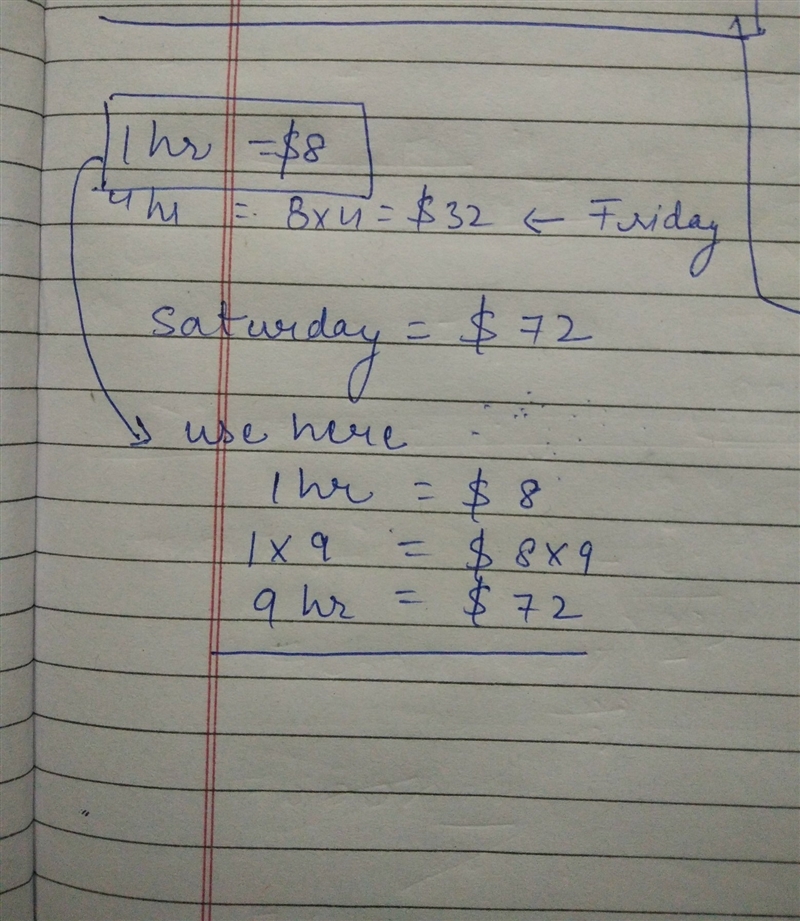 1 hr = $8
4 hr = 8x4 = $32 ← Friday
Saturday = $ 72
use here
1 hr = $ 8
1 x 9 = $ 8 x 9
9 hr = $ 72